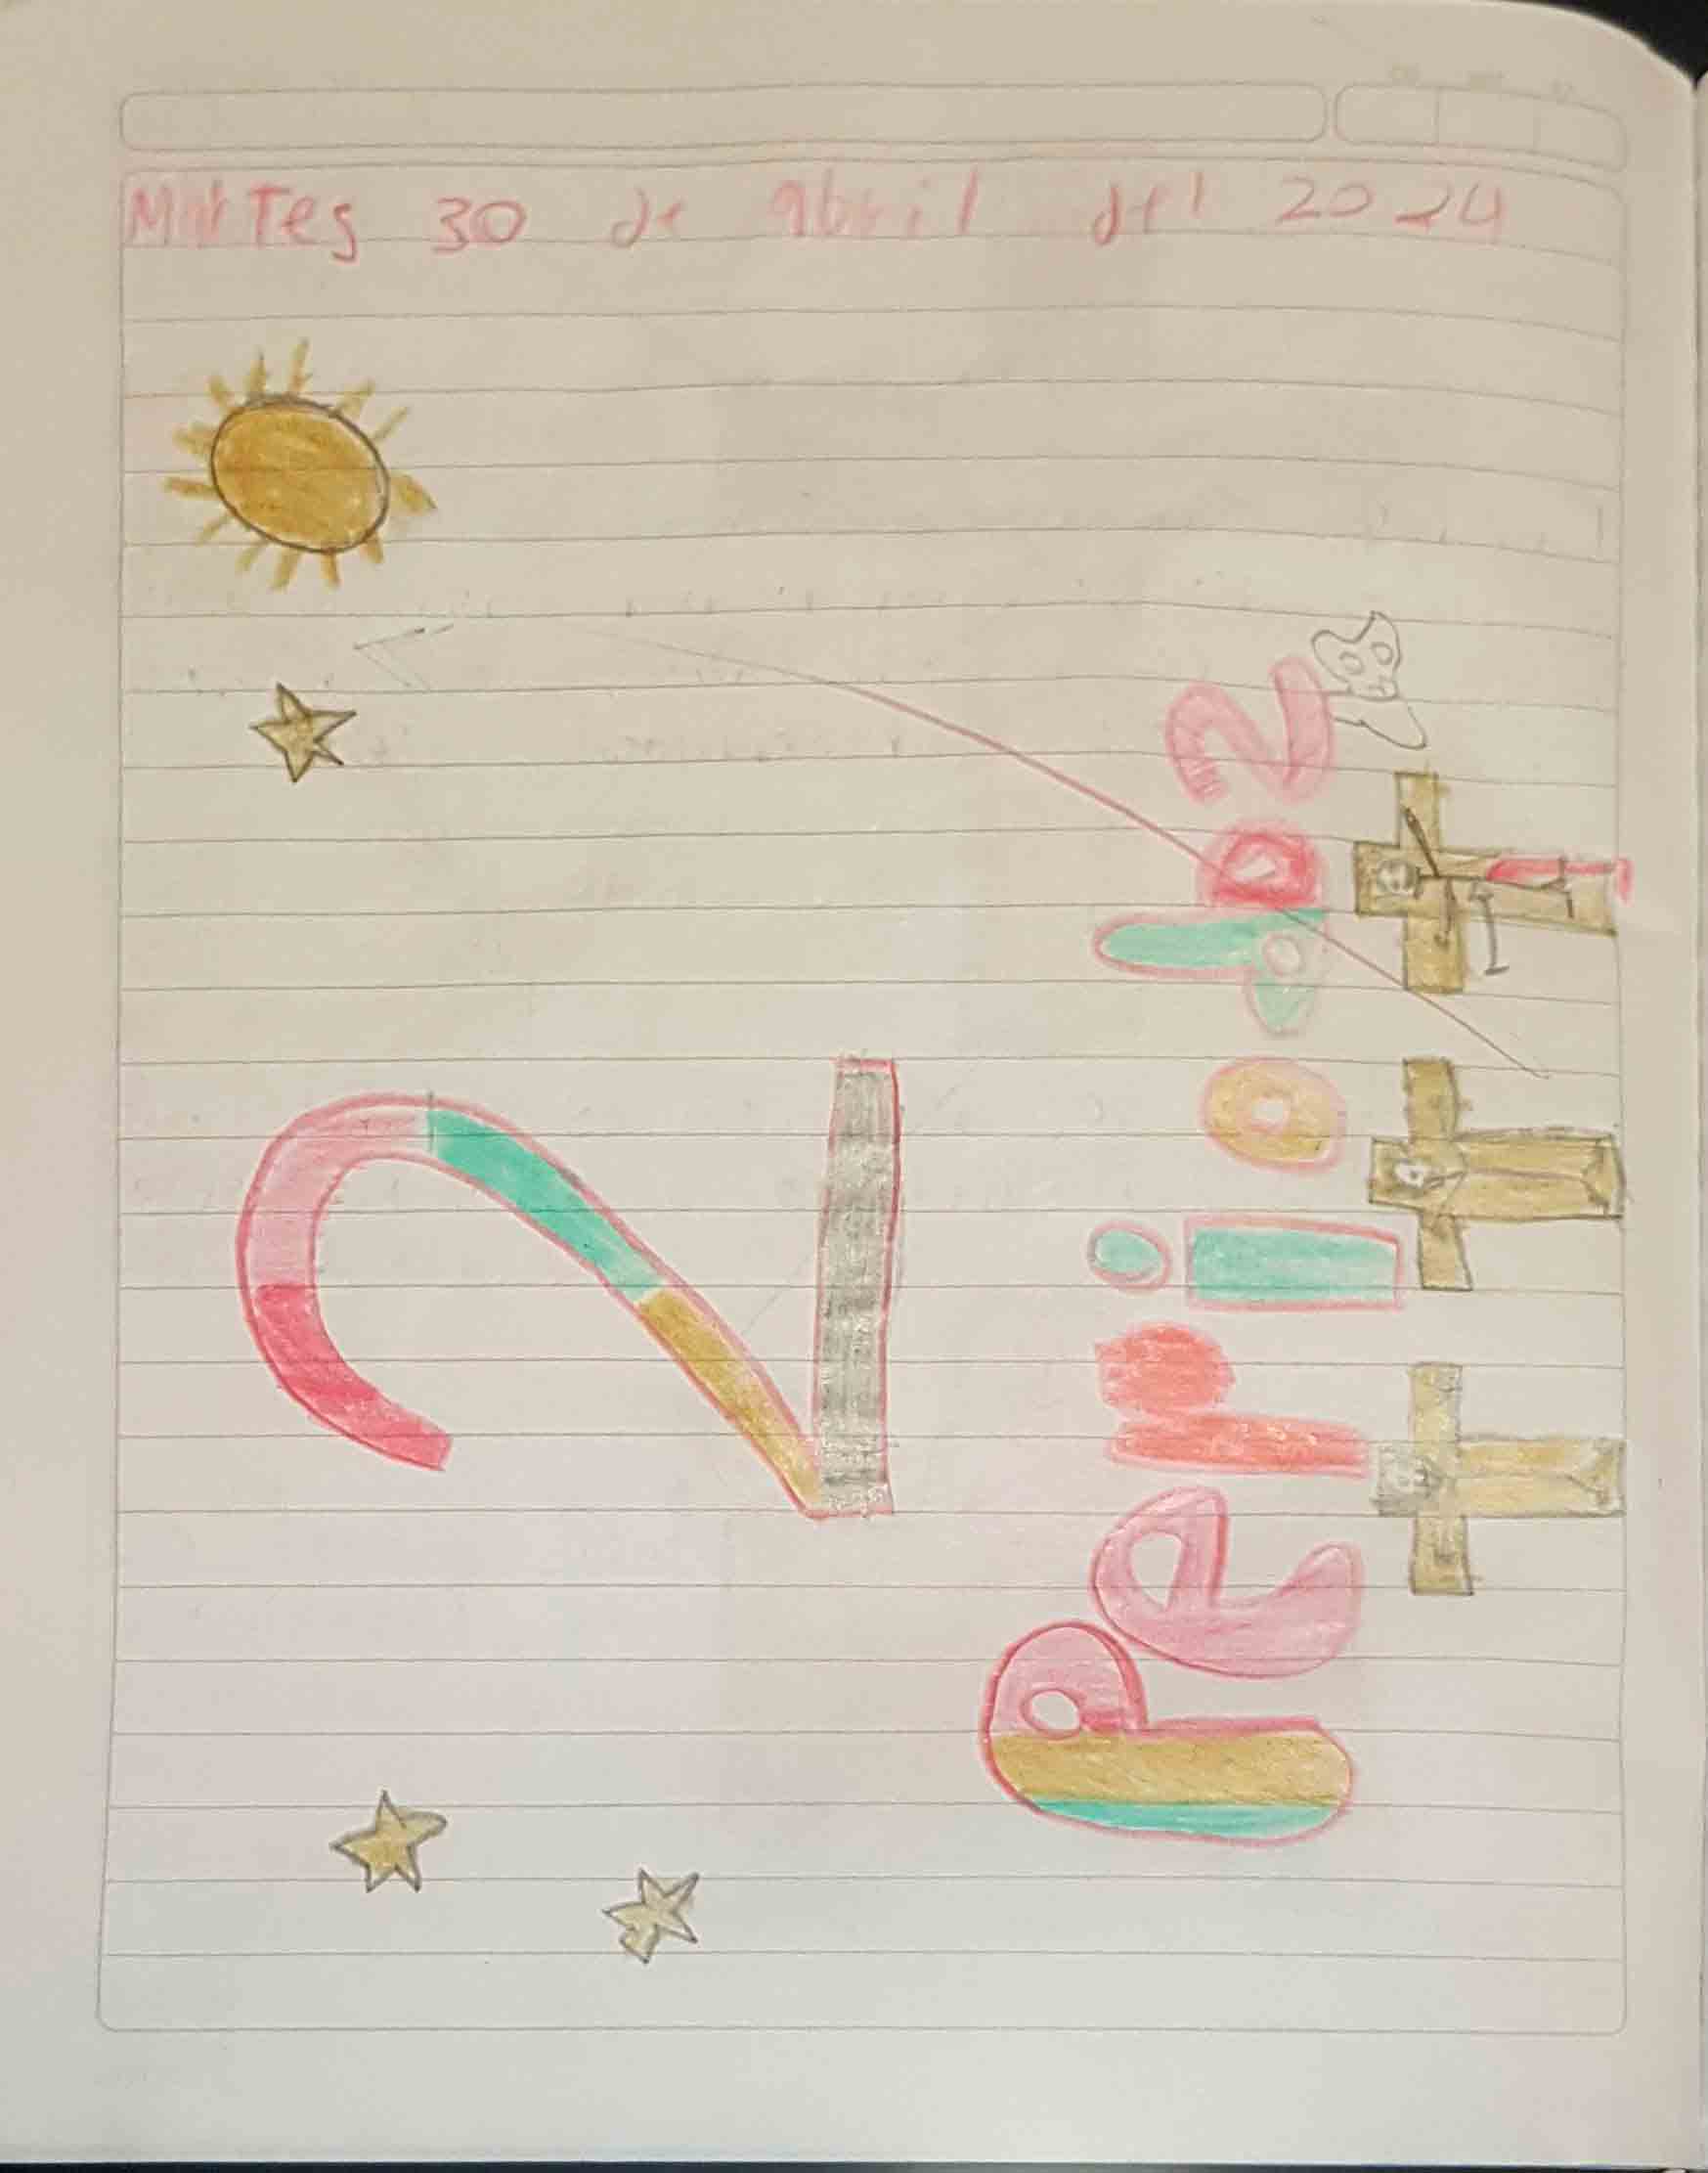 Martes 30 de abril del 2024
2
Periodo 2